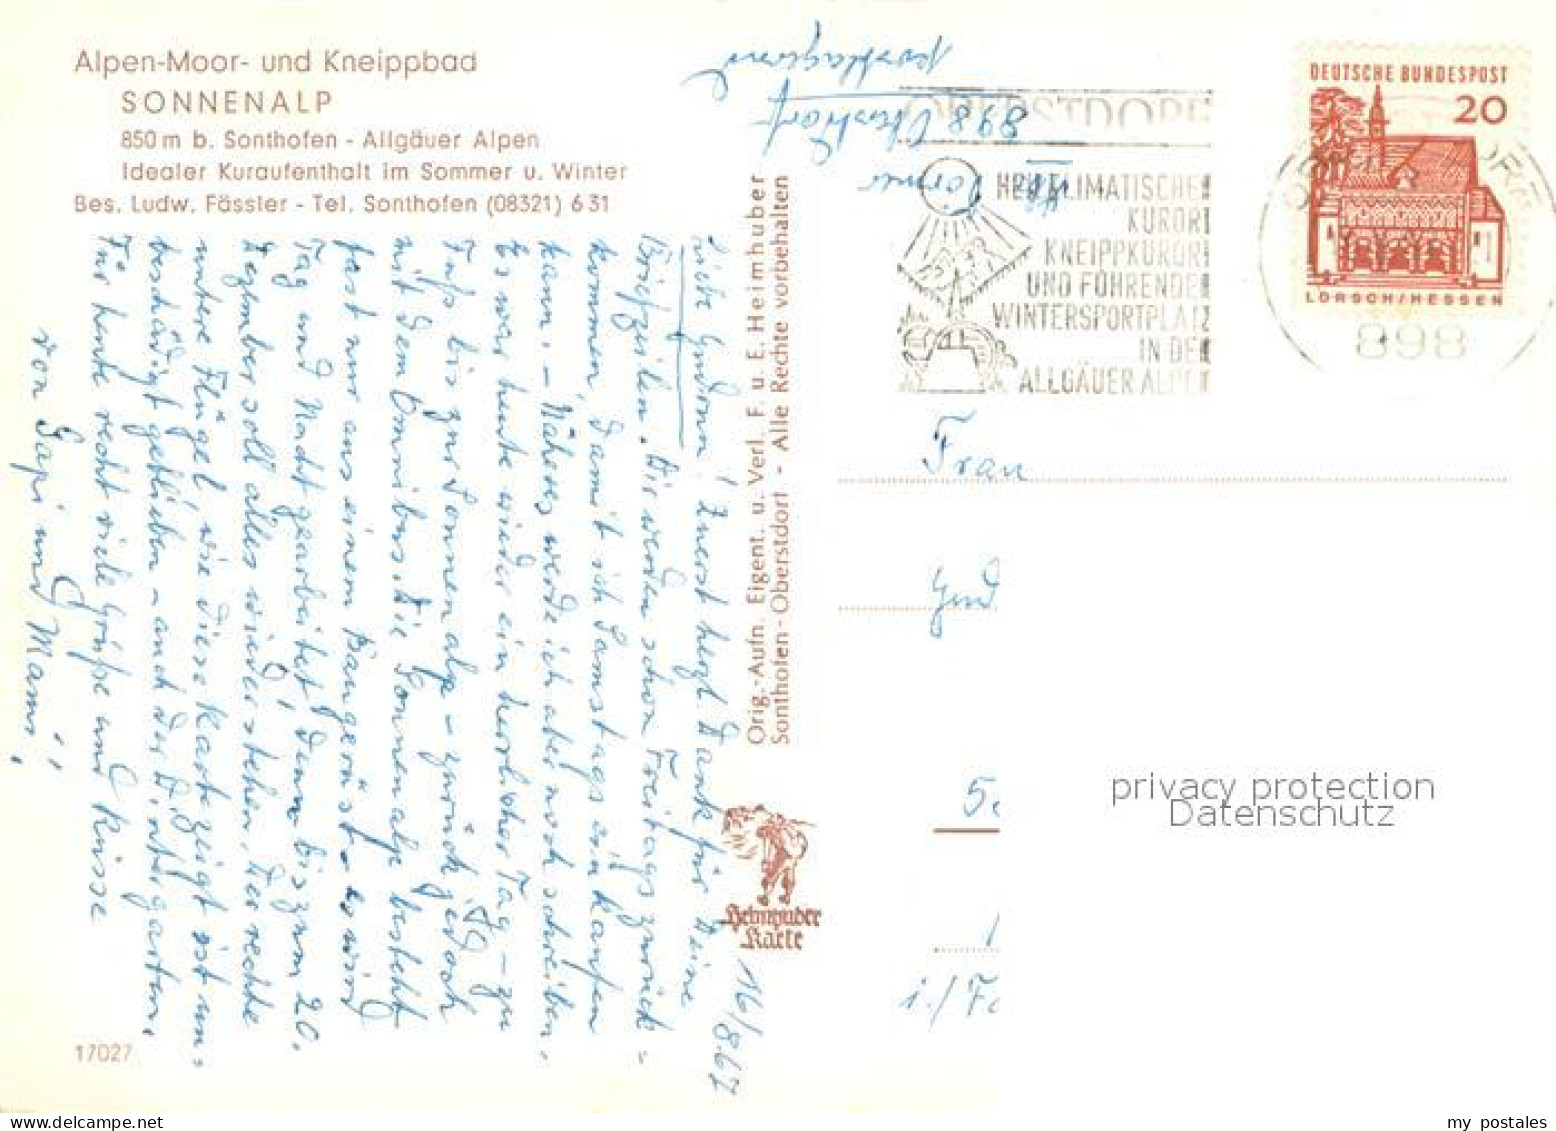 Alpen-Moor- und Kneippbad
SONNENALP
850 m b. Sonthofen - Allgäuer Alpen
Idealer Kuraufenthalt im Sommer u. Winter
Bes. Ludw. Fässler - Tel. Sonthofen (08321) 6 31
Liebe Gudrun! Zuerst herzl. Dank für Deine
Briefzeilen. Wir werden schon Freitags zurück-
kommen, damit ich Samstags einkaufen
kann. - Näheres werde ich aber noch schreiben.
Es war heute wieder ein herrlicher Tag - zu
Fuß bis zur Sonnenalp - zurück jedoch
mit dem Omnibus. Die Sonnenalp besteht
fast nur aus einem Baugerüst - es wird
Tag und Nacht gearbeitet, denn bis zum 20.
Dezember soll alles wieder stehen. Der rechte
untere Flügel, wie diese Karte zeigt ist un-
beschädigt geblieben - auch der Wintergarten.
Für heute recht viele Grüße und Küsse
von Papi und Mami.
16/8.67
17027
Orig.-Aufn. Eigent. u. Verl. F. u. E. Heimhuber
Sonthofen - Oberstdorf - Alle Rechte vorbehalten
Heimhuber
Karte
898 Oberstdorf
postlagernd
OBERSTDORF
HEILKLIMATISCHER
KURORT
KNEIPPKURORT
UND FÜHRENDER
WINTERSPORTPLATZ
IN DEN
ALLGÄUER ALPEN
DEUTSCHE BUNDESPOST
20
LORSCH/HESSEN
898
Frau
Gud
i./Fa
privacy protection
Datenschutz
my postales